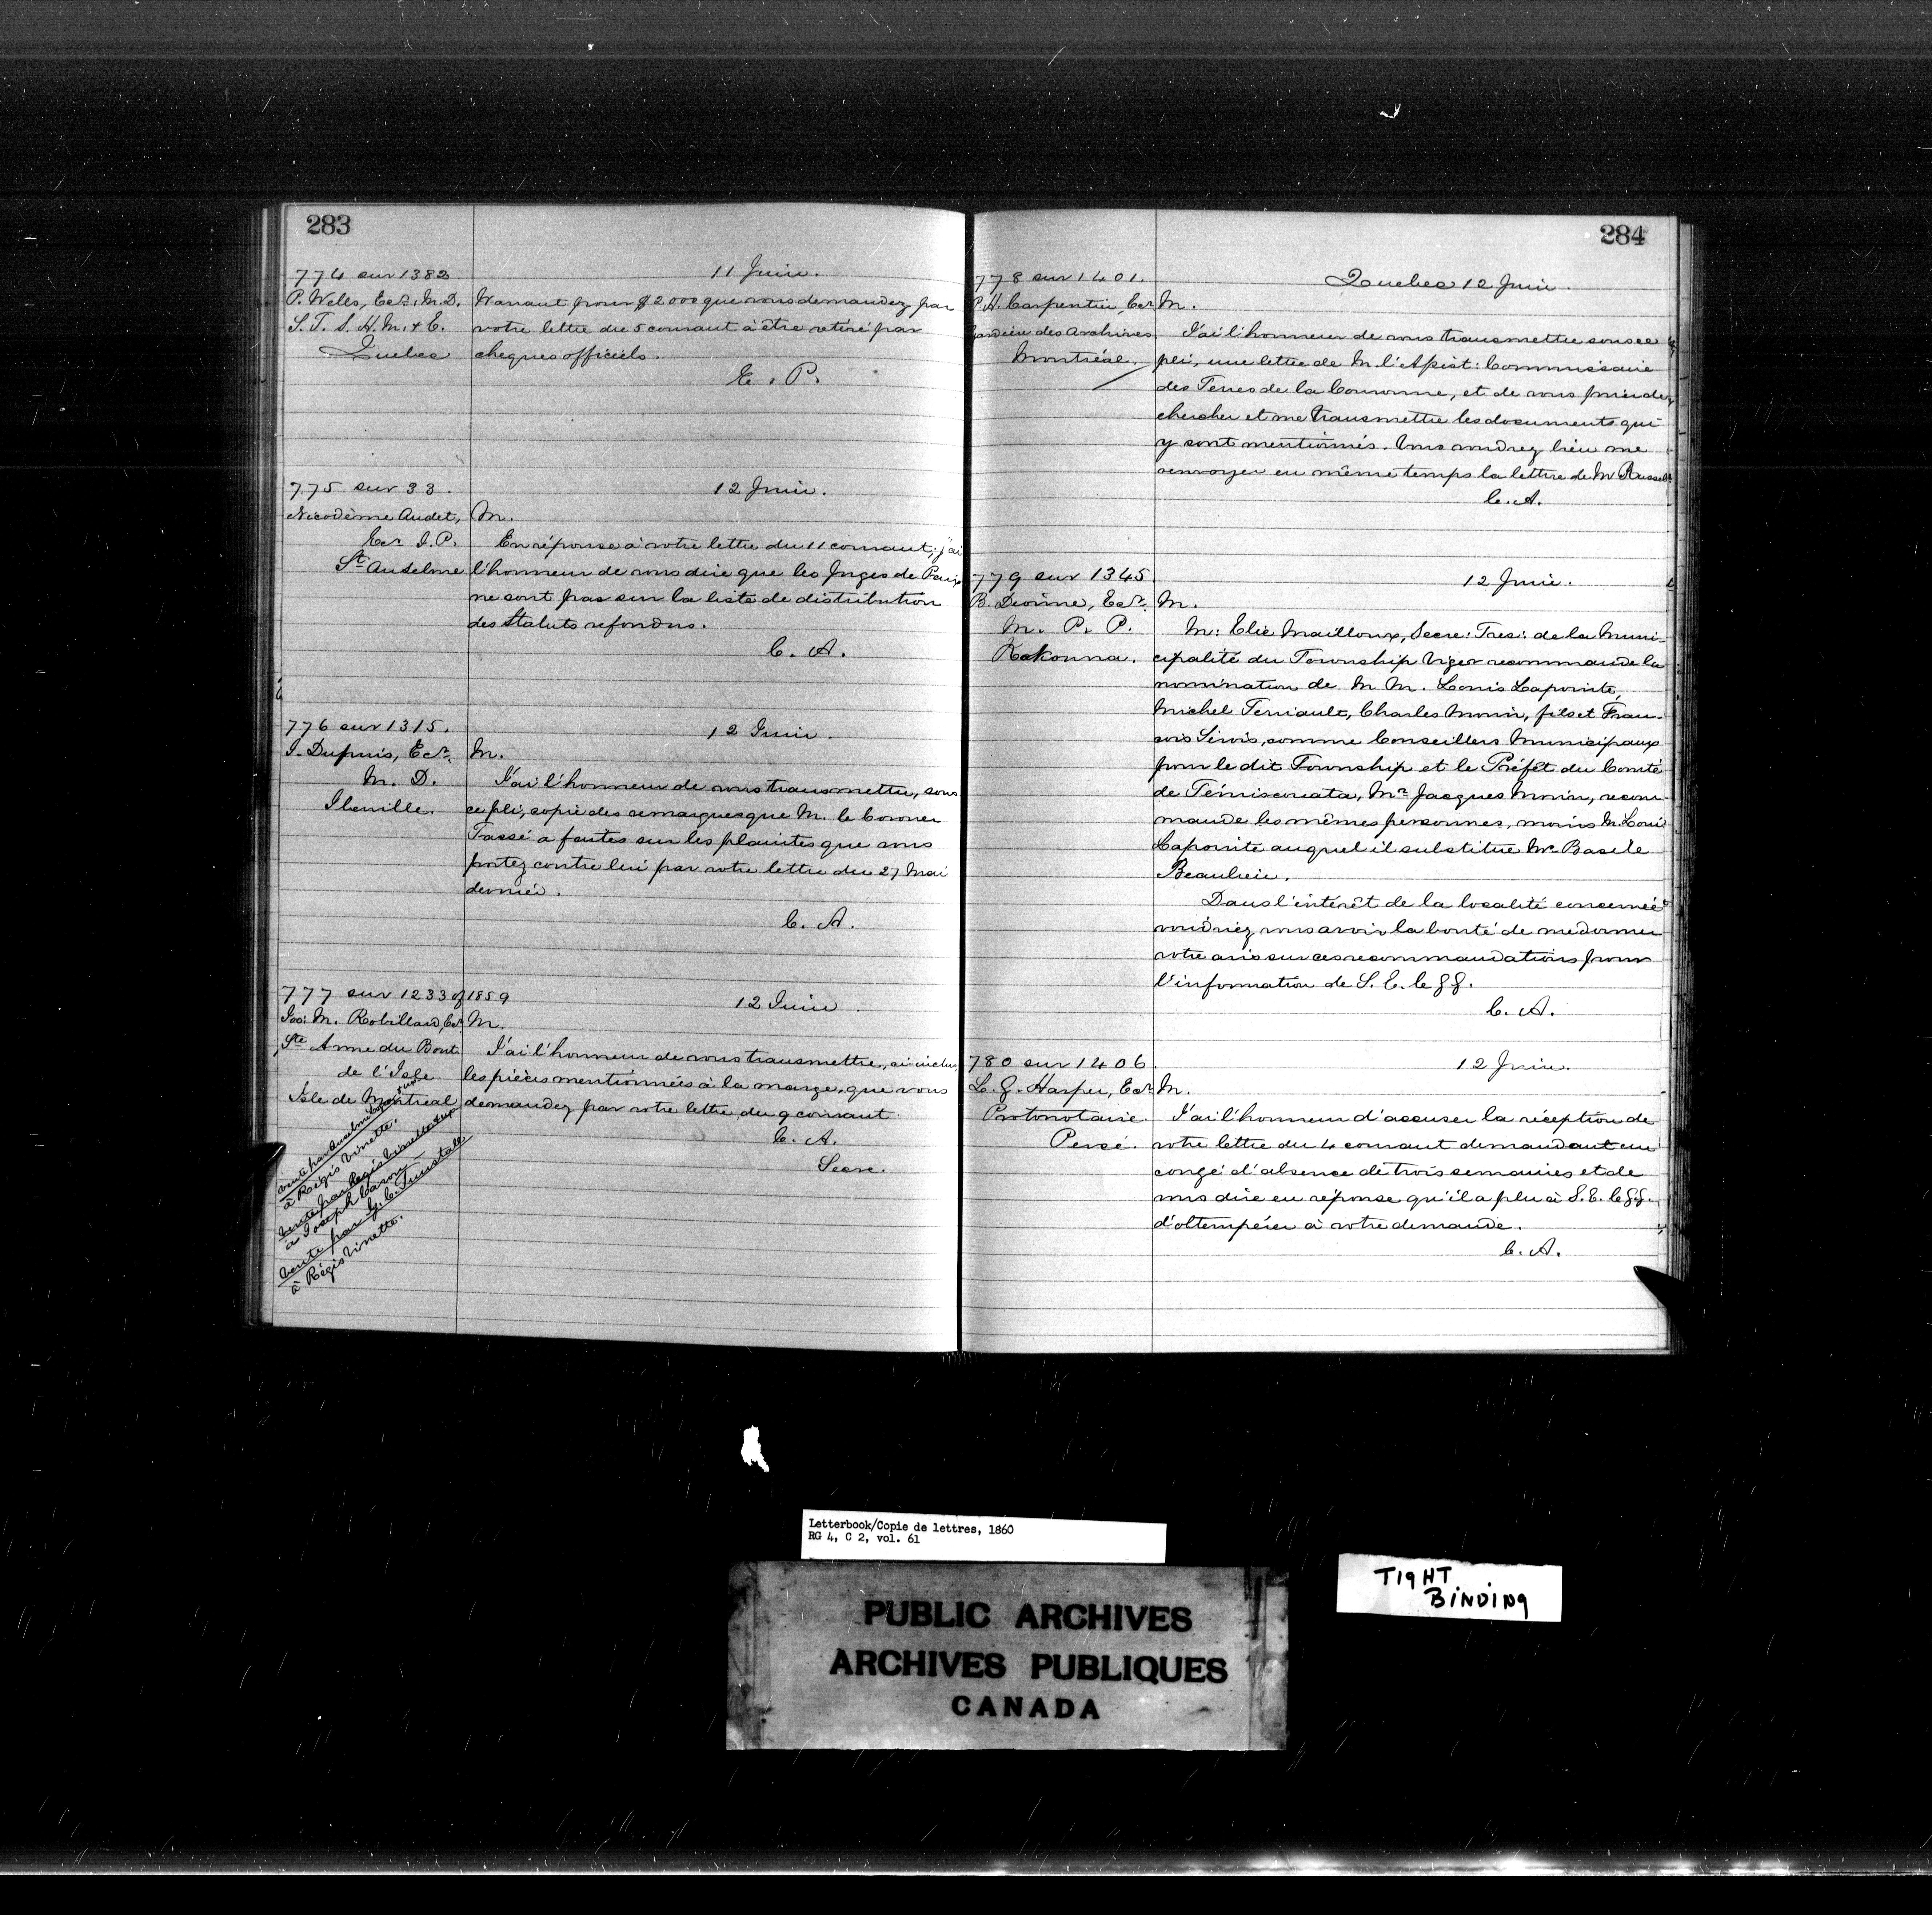 283
774 sur 1382
P. Wells, Ecr. M.D.
S. T. S. H. M. & E.
Quebec
11 Juin.
Warrant pour $2000 que vous demandez par
votre lettre du 5 courant à être retiré par
cheques officiels.
E. P.
775 sur 33.
Nicodème Audet,
Ecr J. P.
St Anselme
12 Juin.
M.
En réponse à votre lettre du 11 courant, j'ai
l'honneur de vous dire que les Juges de Paix
ne sont pas sur la liste de distribution
des Statuts refondus.
C. A.
776 sur 1315.
J. Dupuis, Ecr.
M. D.
Iberville.
12 Juin.
M.
J'ai l'honneur de vous transmettre, sous
ce pli, copie des remarques que M. le Coroner
Tassé a faites sur les plaintes que vous
portez contre lui par votre lettre du 27 Mai
dernier.
C. A.
777 sur 1233 of 1859
Jos: M. Robillard, Ecr
Ste Anne du Bout
de l'Isle
Isle de Montreal
vente par Anselme
à Régis Vinette.
Vente par Regis
à Joseph Caron
Vente par G. C. Tunstall
à Régis Vinette.
12 Juin.
M.
J'ai l'honneur de vous transmettre, ci-inclus,
les pièces mentionnées à la marge, que vous
demandez par votre lettre du 9 courant.
C. A.
Secre.
284
778 sur 1401.
P. H. Carpentier, Ecr
Gardien des Archives
Montréal.
Quebec 12 Juin.
M.
J'ai l'honneur de vous transmettre sous ce
pli, une lettre de M. l'Assist: Commissaire
des Terres de la Couronne, et de vous prier de
chercher et me transmettre les documents qui
y sont mentionnés. Vous voudrez bien me
renvoyer en même temps la lettre de M Russell
C. A.
779 sur 1345.
B. Dionne, Ecr.
M. P. P.
Kakouna.
12 Juin.
M.
M: Elie Mailloux, Secre: Tres: de la Muni-
cipalité du Township Viger recommande la
nomination de M M. Louis Lapointe,
Michel Terriault, Charles Morin, fils et Fran-
cois Sirois, comme Conseillers Municipaux
pour le dit Township et le Préfèt du Comté
de Témiscouata, Mr Jacques Morin, recom-
mande les mêmes personnes, moins M. Louis
Lapointe auquel il substitue Mr Basile
Beaulieu.
Dans l'intérêt de la localité concernée
voudriez vous avoir la bonté de me donner
votre avis sur ces recommandations pour
l'information de S. E. le G G.
C. A.
780 sur 1406.
L. G. Harper, Ecr
Protonotaire.
Percé.
12 Juin.
M.
J'ai l'honneur d'accuser la réception de
votre lettre du 4 courant demandant un
congé d'absence de trois semaines et de
vous dire en réponse qu'il a plu à S. E. le G. G.
d'obtempérer à votre demande.
C. A.
Letterbook/Copie de lettres, 1860
RG 4, C 2, vol. 61
TIGHT
BINDING
PUBLIC ARCHIVES
ARCHIVES PUBLIQUES
CANADA